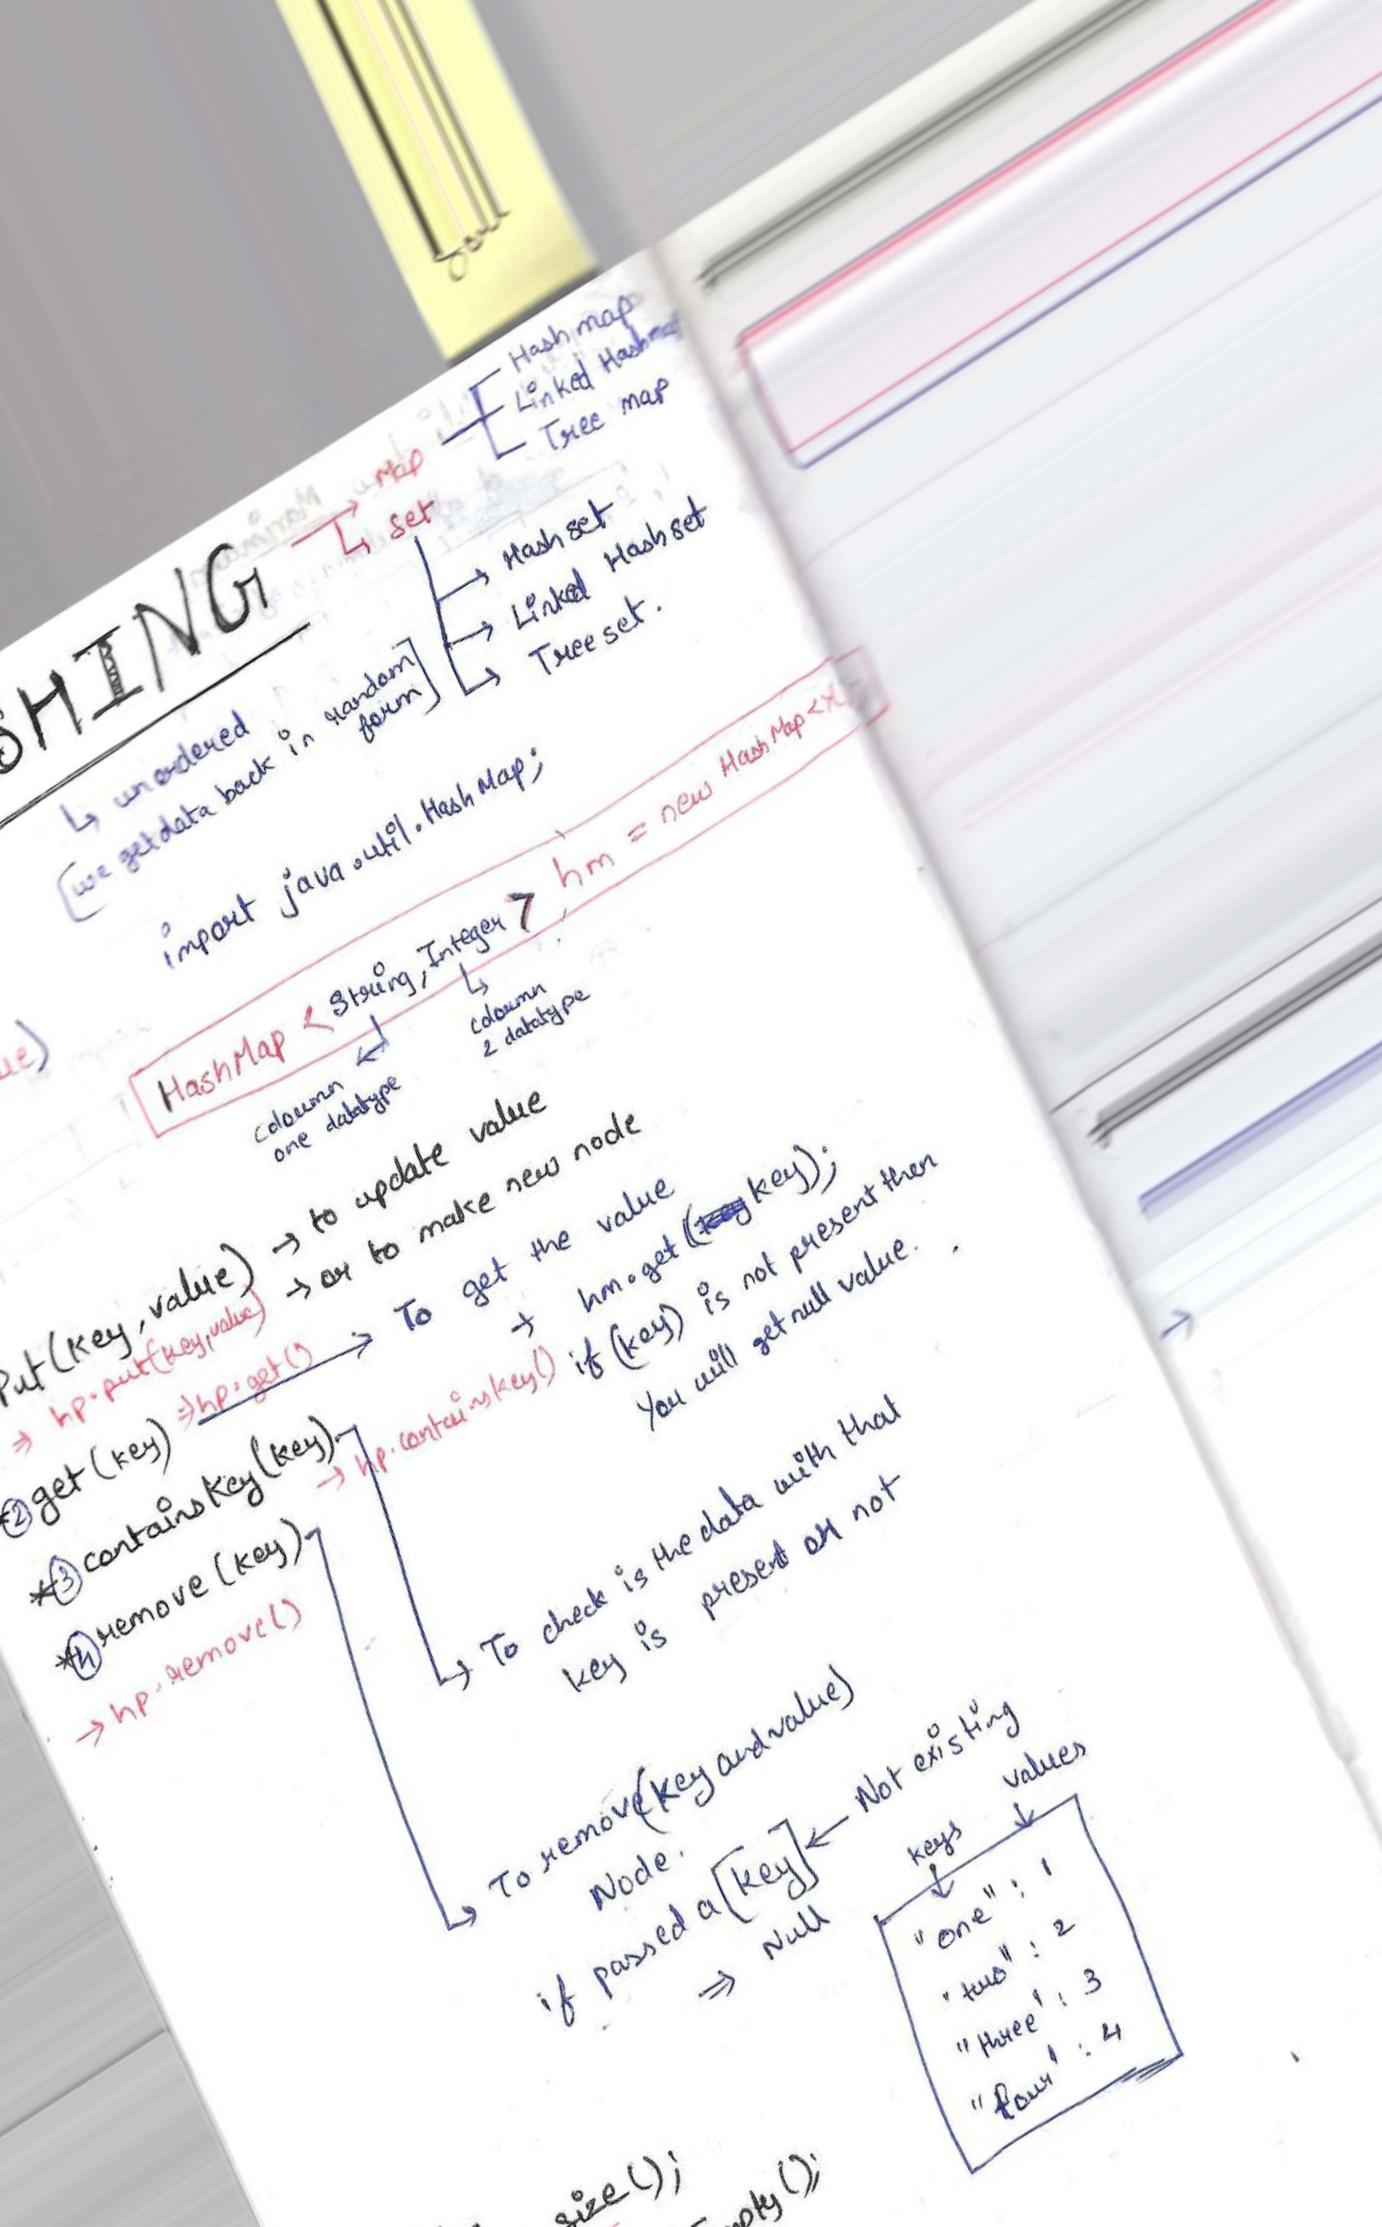 Map
Hash map
Linked Hashmap
Tree map
set
Hash set
Linked Hashset
Tree set.
SHING
↳ unordered
[we get data back in random
form]
import java.util.HashMap;
HashMap < String, Integer > hm = new HashMap<
coloumn
one datatype
coloumn
2 datatype
ue)
Put(key, value) → to update value
→ or to make new node
⇒ hp.put(key,value)
②get(key) ⇒hp.get() → To get the value
→ hm.get(key);
if (key) is not present then
You will get null value.
*③containsKey(key).
→ hp.containsKey()
To check is the data with that
key is present or not
*④remove(key)
→hp.remove()
To remove(key and value)
Node.
if passed a [key] ← Not existing
⇒ Null
keys values
"one" : 1
"two" : 2
"three" : 3
"four" : 4
size();
Empty();